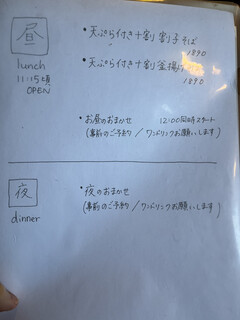 昼
lunch
11:15頃
OPEN
・天ぷら付き十割 割子そば
1890
・天ぷら付き十割 釜揚げ
1890
・お昼のおまかせ 12:00同時スタート
(事前のご予約 / ワンドリンクお願いします)
夜
dinner
・夜のおまかせ
(事前のご予約 / ワンドリンクお願いします)